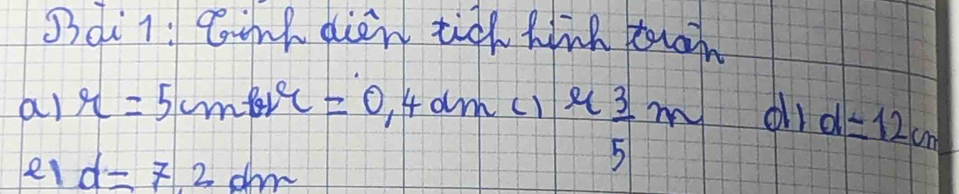 Bài 1: Tính diện tích hình tròn
a) r = 5cm b) r = 0,4 dm c) r 3/5 m d) d = 12cm
e) d = 7,2 dm